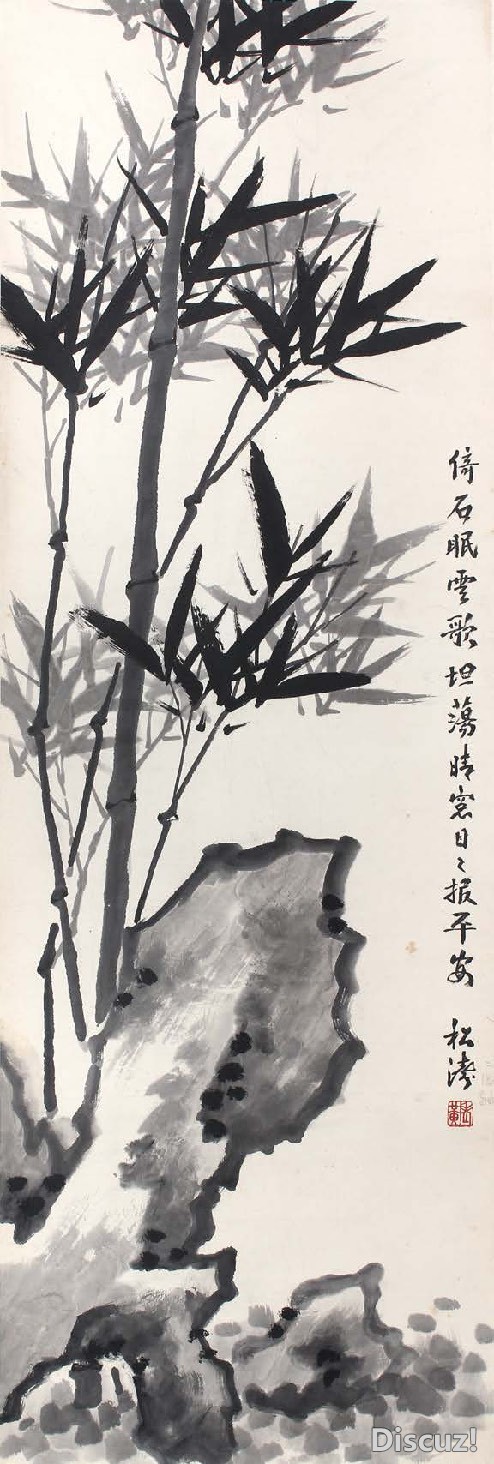 倚石眠雲歌坦蕩晴窓日〻报平安
松涛
Discuz!